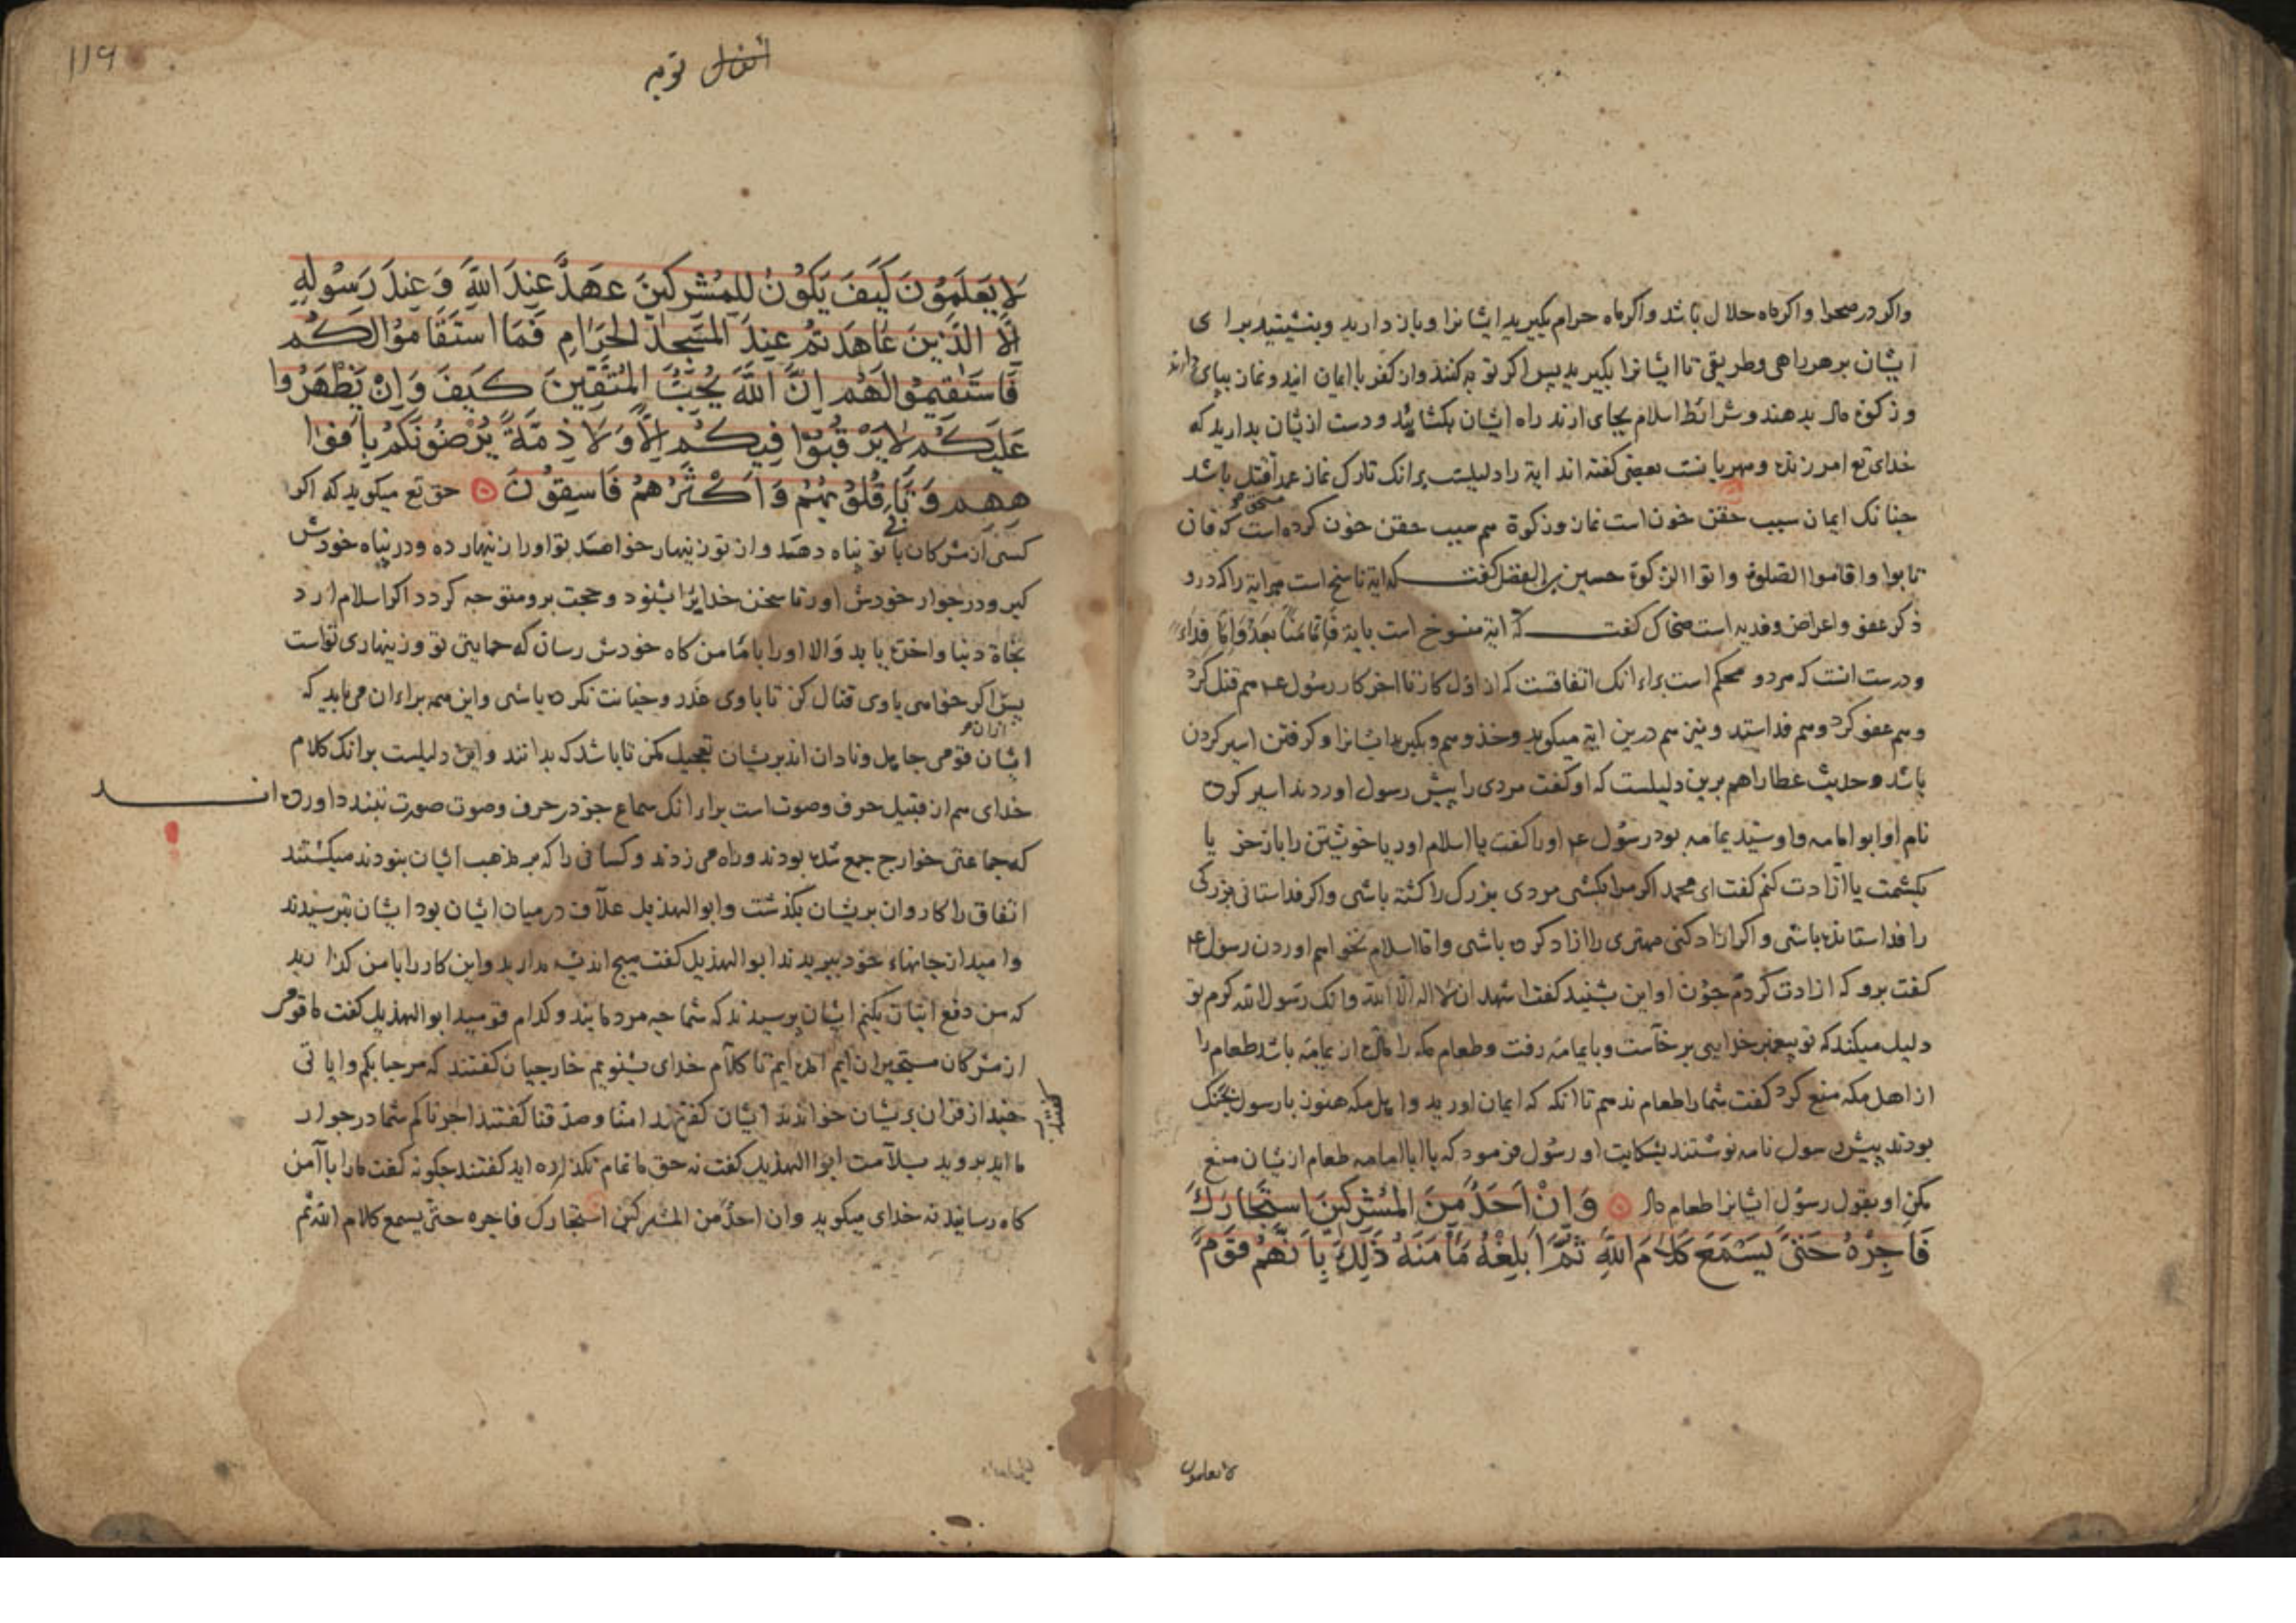 واکر در صحرا واکر ماه حلال باشد واکر ماه حرام بکیرید ایشانرا وباز دارید وبنشینید برای
ایشان بر هر راهی وطریقی تا ایشانرا بکیرید پس اکر توبه کنند وازکفر با ایمان ایند ونماز بپای دارند
وزکوة مال بدهند وشرائط اسلام بجای ارند راه ایشان بکشائید ودست ازیشان بدارید که
خدای تع امرزنده ومهربانست بعضی کفته اند ایة را دلیلست برانک تارک نماز عمدا قتل باشد
جنانک ایمان سبب حقن خون است نماز وزکوة هم سبب حقن خون کرده است که فان
تابوا واقاموا الصلوة واتوا الزکوة حسین بن الفضل کفت که ایة ناسخ است هر ایة را که درو
ذکر عفو واعراض وفدیه است ضحاک کفت که ایة منسوخ است بایة فاما منا بعد واما فداء
ودرست انست که هر دو محکم است براء انک اتفاقست که از اول کار تا اخر کار رسول ع م هم قتل کرد
وهم عفو کرد وهم فدا ستد ونیز هم درین ایة میکوید وخذوهم وبکیرید ایشانرا وکرفتن اسیر کردن
باشد وحدیث عطا راهم برین دلیلست که او کفت مردی را پیش رسول اوردند اسیر کرده
نام او ابو امامه واو سید یمامه بود رسول ع م او را کفت یا اسلام اور یا خویشتن را باز خر یا
بکشمت یا ازادت کنم کفت ای محمد اکر مرا بکشی مردی بزرک را کشته باشی واکر فدا ستانی بزرکی
را فدا ستانده باشی واکر ازاد کنی مهتری را ازاد کرده باشی واما اسلام نخواهم اوردن رسول ع م
کفت برو که ازادت کردم جون او این بشنید کفت اشهد ان لا اله الا الله وانک رسول الله کرم تو
دلیل میکند که تو پیغمبر خدایی برخاست وبا یمامه رفت وطعام مکه را از یمامه باشد طعام را
از اهل مکه منع کرد کفت شما را طعام ندهم تا انکه که ایمان اورید واهل مکه هنوز با رسول بجنک
بودند پیش رسول نامه نوشتند بشکایت او رسول فرمود که یا ابا امامه طعام ازیشان منع
مکن او بقول رسول ایشانرا طعام داد وَاِنْ اَحَدٌ مِنَ المُشْرِكِينَ اسْتَجَارَكَ
فَاَجِرْهُ حَتّىٰ يَسْمَعَ كَلَامَ اللّٰهِ ثُمَّ اَبْلِغْهُ مَأْمَنَهُ ذٰلِكَ بِاَنَّهُمْ قَوْمٌ
لا یعلمون
۱۱۹
انفال توبه
لَا يَعْلَمُونَ كَيْفَ يَكُونُ لِلْمُشْرِكِينَ عَهْدٌ عِنْدَ اللّٰهِ وَعِنْدَ رَسُولِهِ
اِلَّا الَّذِينَ عَاهَدْتُمْ عِنْدَ المَسْجِدِ الحَرَامِ فَمَا اسْتَقَامُوا لَكُمْ
فَاسْتَقِيمُوا لَهُمْ اِنَّ اللّٰهَ يُحِبُّ المُتَّقِينَ كَيْفَ وَاِنْ يَظْهَرُوا
عَلَيْكُمْ لَا يَرْقُبُوا فِيكُمْ اِلًّا وَلَا ذِمَّةً يُرْضُونَكُمْ بِاَفْوَا
هِهِمْ وَتَأْبٰى قُلُوبُهُمْ وَاَكْثَرُهُمْ فَاسِقُونَ حق تع میکوید که اکر
کسی از مشرکان با تو پناه دهند واز تو زینهار خواهند تو اورا زینهار ده ودر پناه خودش
کیر ودر جوار خودش اور تا سخن خدایرا بشنود وحجت برو متوجه کردد اکر اسلام ارد
نجاة دنیا واخرة یابد والا اورا با مامن کاه خودش رسان که حمایتی تو وزینهاری تواست
پس اکر خواهی با وی قتال کن تا با وی غدر وخیانت نکرده باشی واین همه براء ان می باید که
ایشان قومی جاهل ونادان اند بریشان تعجیل مکن تا باشد که بدانند واین دلیلست برانک کلام
خدای هم از قبیل حرف وصوت است براء انک سماع جز در حرف وصوت صورت نبندد اورده اند
که جماعتی خوارج جمع شده بودند وراه می زدند وکسانی را که بر مذهب ایشان نبودند میکشتند
اتفاق را کاروان بریشان بکذشت وابو الهذیل علاف در میان ایشان بود ایشان بترسیدند
وامید از جانهاء خود ببریدند ابو الهذیل کفت هیج اندیشه مدارید واین کار را با من کذارید
که من دفع ایشان بکنم ایشان پرسیدند که شما جه مردمانید وکدام قومید ابو الهذیل کفت ما قومی
از مشرکان مستجیران ایم امده ایم تا کلام خدای بشنویم خارجیان کفتند که مرحبا بکم وایاتی
جند از قران بریشان خواندند ایشان کفتند امنا وصدقنا کفتند اجرناکم شما در جوار
کفتند
ما اید بروید بسلامت ابو الهذیل کفت نه حق ما تمام نکذارده اید کفتند جکونه کفت ما را با آمن
کاه رسانید نه خدای میکوید وان احد من المشرکین استجارک فاجره حتی یسمع کلام الله ثم